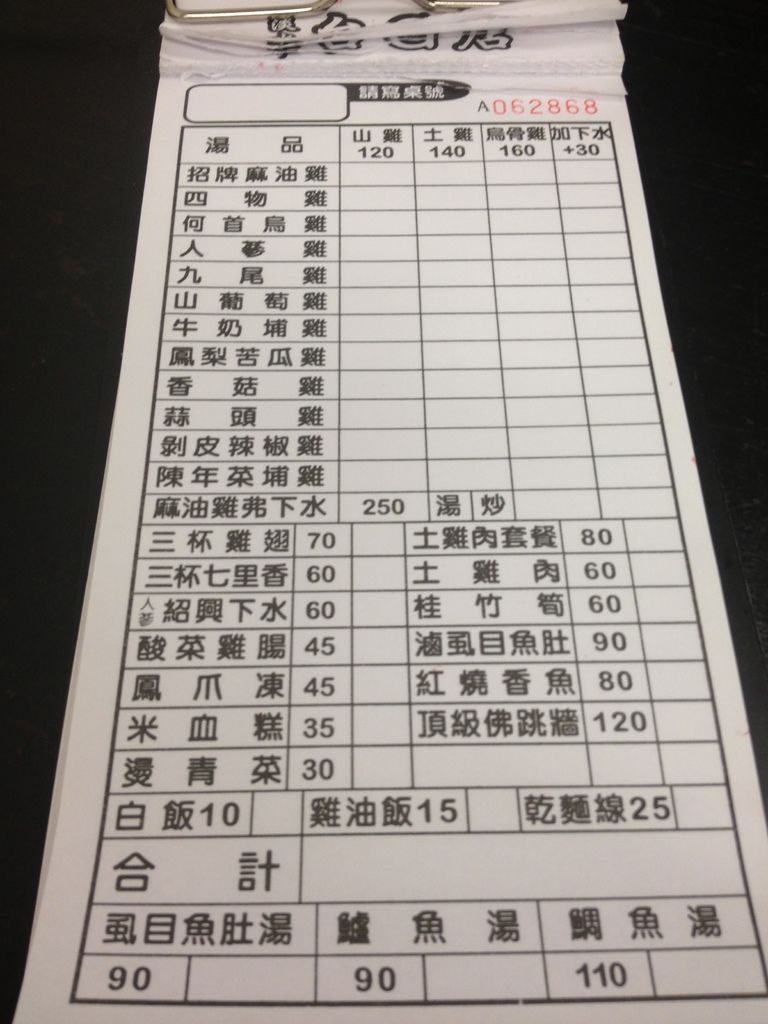 請寫桌號
A062868
湯品 山雞 120 土雞 140 烏骨雞 160 加下水 +30
招牌麻油雞
四物雞
何首烏雞
人蔘雞
九尾雞
山葡萄雞
牛奶埔雞
鳳梨苦瓜雞
香菇雞
蒜頭雞
剝皮辣椒雞
陳年菜埔雞
麻油雞弗下水 250 湯 炒
三杯雞翅 70 土雞肉套餐 80
三杯七里香 60 土雞肉 60
人蔘紹興下水 60 桂竹筍 60
酸菜雞腸 45 滷虱目魚肚 90
鳳爪凍 45 紅燒香魚 80
米血糕 35 頂級佛跳牆 120
燙青菜 30
白飯10 雞油飯15 乾麵線25
合計
虱目魚肚湯 鱸魚湯 鯛魚湯
90 90 110